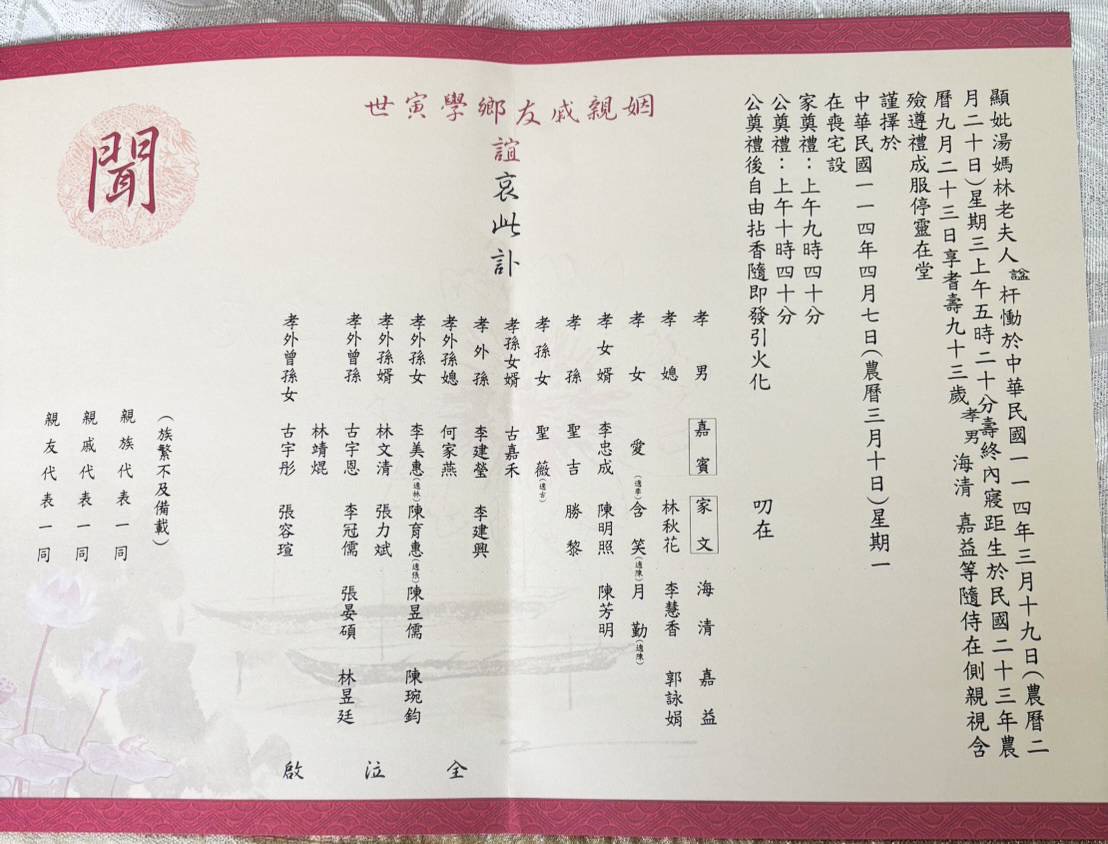 顯妣湯媽林老夫人諡杆慟於中華民國一一四年三月十九日(農曆二
月二十日)星期三上午五時二十分壽終內寢距生於民國二十三年農
曆九月二十三日享耆壽九十三歲孝男海清 嘉益等隨侍在側親視含
殮遵禮成服停靈在堂
謹擇於
中華民國一一四年四月七日(農曆三月十日)星期一
在喪宅設
家奠禮:上午九時四十分
公奠禮:上午十時四十分
公奠禮後自由拈香隨即發引火化
叨在
姻親戚友鄉學寅世
誼哀此訃
聞
孝男 嘉賓 家文 海清 嘉益
孝媳 林秋花 李慧香 郭詠娟
孝女 愛(適李) 含笑(適陳) 月勤(適陳)
孝女婿 李忠成 陳明照 陳芳明
孝孫 聖吉 勝黎
孝孫女 聖薇(適古)
孝孫女婿 古嘉禾
孝外孫 李建瑩 李建興
孝外孫媳 何家燕
孝外孫女 李美惠(適林) 陳育惠(適張) 陳昱儒 陳琬鈞
孝外孫婿 林文清 張力斌
孝外曾孫 古宇恩 李冠儒 張晏碩 林昱廷
林靖焜
孝外曾孫女 古宇彤 張容瑄
仝泣啟
(族繁不及備載)
親族代表一同
親戚代表一同
親友代表一同